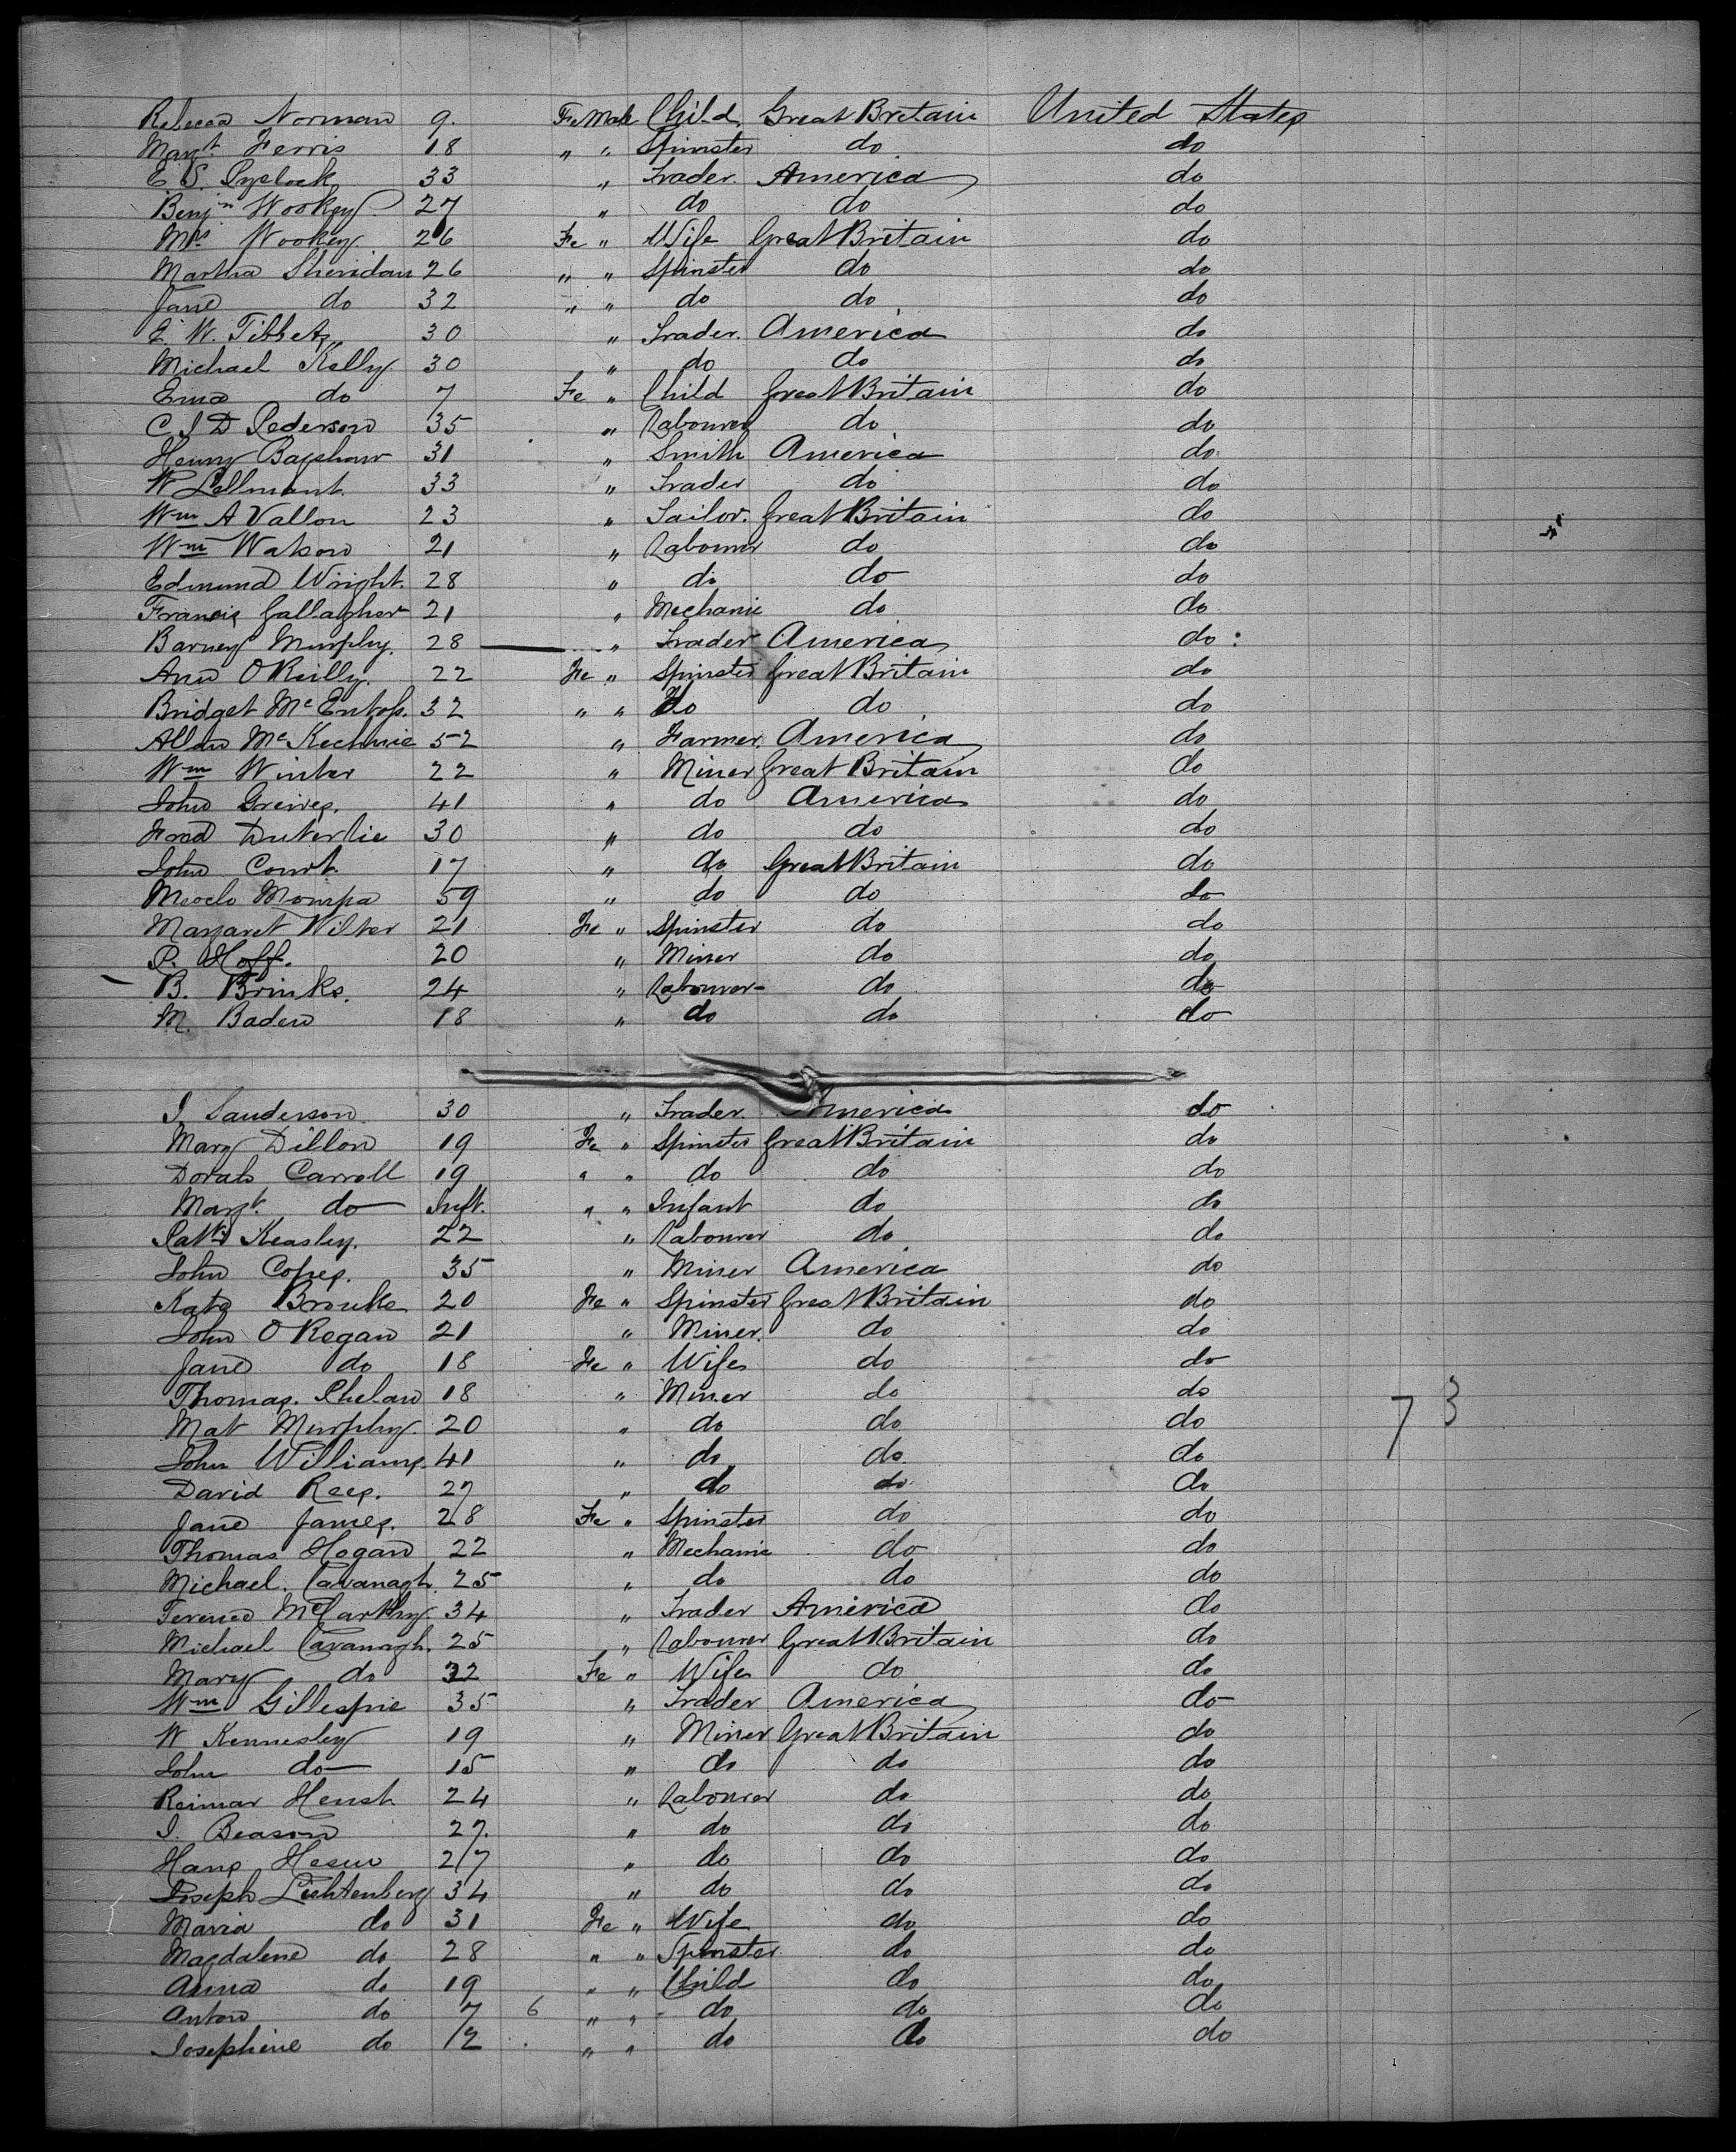 Rebecca Norman 9. Fe Male Child Great Britain United States
Margt. Ferris 18 " " Spinster do do
E. S. Pyelock 33 " Trader. America do
Benjn Wookey 27 " do do do
Mrs Wookey 26 Fe " Wife Great Britain do
Martha Sheridan 26 " " Spinster do do
Jane do 32 " " do do do
E. W. Tibbets 30 " Trader. America do
Michael Kelly 30 " do do do
Ema do 7 Fe " Child Great Britain do
C J D Pederson 35 " Labourer do do
Henry Bagshaw 31 " Smith America do
W Lellmant 33 " Trader do do
Wm A Vallon 23 " Tailor. Great Britain do
Wm Watson 21 " Labourer do do
Edmund Wright. 28 " do do do
Francis Gallagher 21 " Mechanic do do
Barney Murphy. 28 " Trader America do
Ann O Reilly. 22 Fe " Spinster Great Britain do
Bridget Mc 32 " " Do do do
Allan McKechnie 52 " Farmer. America do
Wm Winter 22 " Miner Great Britain do
John Greives. 41 " do America do
Fred 30 " do do do
John Court 17 " do Great Britain do
59 " do do do
Margaret Wilter 21 Fe " Spinster do do
P. Hoff. 20 " Miner do do
B. Brinks. 24 " Labourer do do
M. Baden 18 " do do do
J. Sanderson 30 " Trader. America do
Mary Dillon 19 Fe " Spinster Great Britain do
Dorah Carroll 19 " " do do do
Margt. do Inft. " " Infant do do
Patk Keasley. 22 " Labourer do do
John Copes. 35 " Miner America do
Kate Brouke 20 Fe " Spinster Great Britain do
John O Regan 21 " Miner. do do
Jane do 18 Fe " Wife do do
Thomas. Phelan 18 " Miner do do
Mat Murphy. 20 " do do do
73
John Williams. 41 " do do do
David Rees. 27 " do do do
Jane James. 28 Fe " Spinster do do
Thomas Hogan 22 " Mechanic do do
Michael. Cavanagh. 25 " do do do
Terence McCarthy 34 " Trader America do
Michael Cavanagh. 25 " Labourer Great Britain do
Mary do 32 Fe " Wife do do
Wm Gillespie 35 " Trader America do
W Kennesley 19 " Miner Great Britain do
John do 15 " do do do
Reimar Hensh 24 " Labourer do do
J. Beason 27. " do do do
Hans Hesen 27 " do do do
Joseph Lichtenberg 34 " do do do
Maria do 31 Fe " Wife do do
Magdalene do 28 " " Spinster do do
Anna do 19 " " Child do do
Anton do 7 6 " " do do do
Josephine do 12 " " do do do